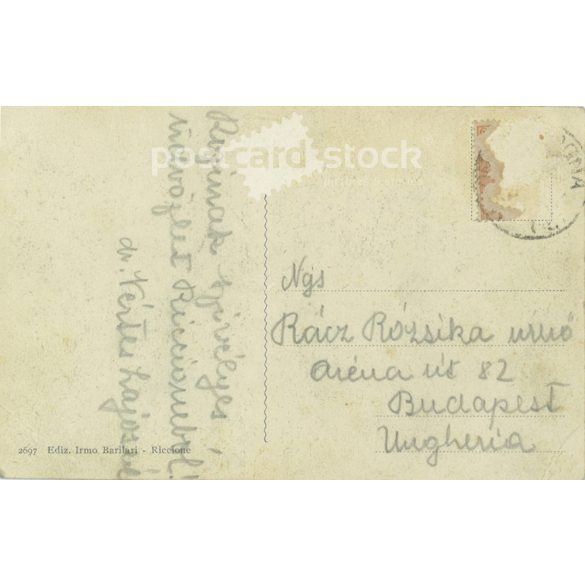 postcard stock
szívélyes
üdvözlet Riccioneból!
dr. Vértes Lajosné
Ngs
Rácz Rózsika úrnő
Aréna út 82
Budapest
Ungheria
2697 Ediz. Irmo Barilari - Riccione